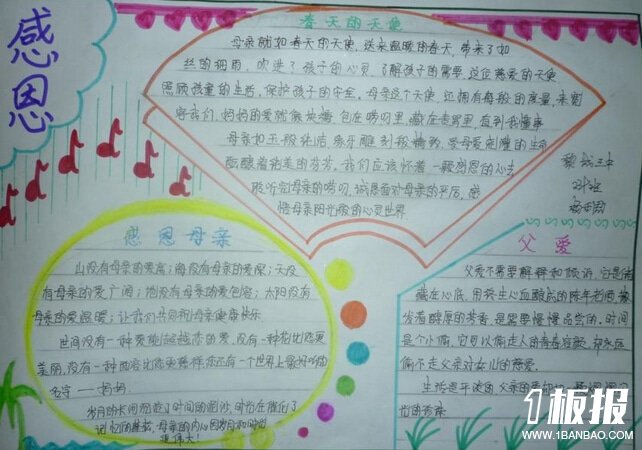 感恩
春天的天使
母亲就如春天的天使，送来温暖的春天，带来了如
丝的细雨，吹进了孩子的心灵，了解孩子的需要，这位慈爱的天使
照顾孩童的生活，保护孩子的安全。母亲这个天使，还拥有海般的度量，来宽
容我们。妈妈的爱就像块糖，包在唠叨里，藏在责骂里，直到我懂事
母亲如玉般纯洁
酝酿着绝美的芬芳。我们应该怀着一颗感恩的心去
聆听您母亲的唠叨，诚恳面对母亲的平厉，感
悟母亲阳光般的心灵世界
黎城三中
感恩母亲
山没有母亲的爱高；海没有母亲的爱深；天没
有母亲的爱广阔；地没有母亲的爱包容；太阳没有
母亲的爱温暖；让我们共同祝母亲健康快乐
世间没有一种爱能超越您的爱，没有一种花比您更
美丽，没有一种面容比您更慈祥，您还有一个世界上最好听的
名字——妈妈
岁月的长河
母亲的内心
伟大！
父爱
父爱不需要解释和倾诉，它是
藏在心底，用养生心血酿成的陈年老酒，散
发着醇厚的芳香，是需要慢慢品尝的。时间
是个小偷，它可以偷走人的青春容颜，却永远
偷不走父亲对女儿的慈爱。
生活是平淡的
1板报
WWW.1BANBAO.COM